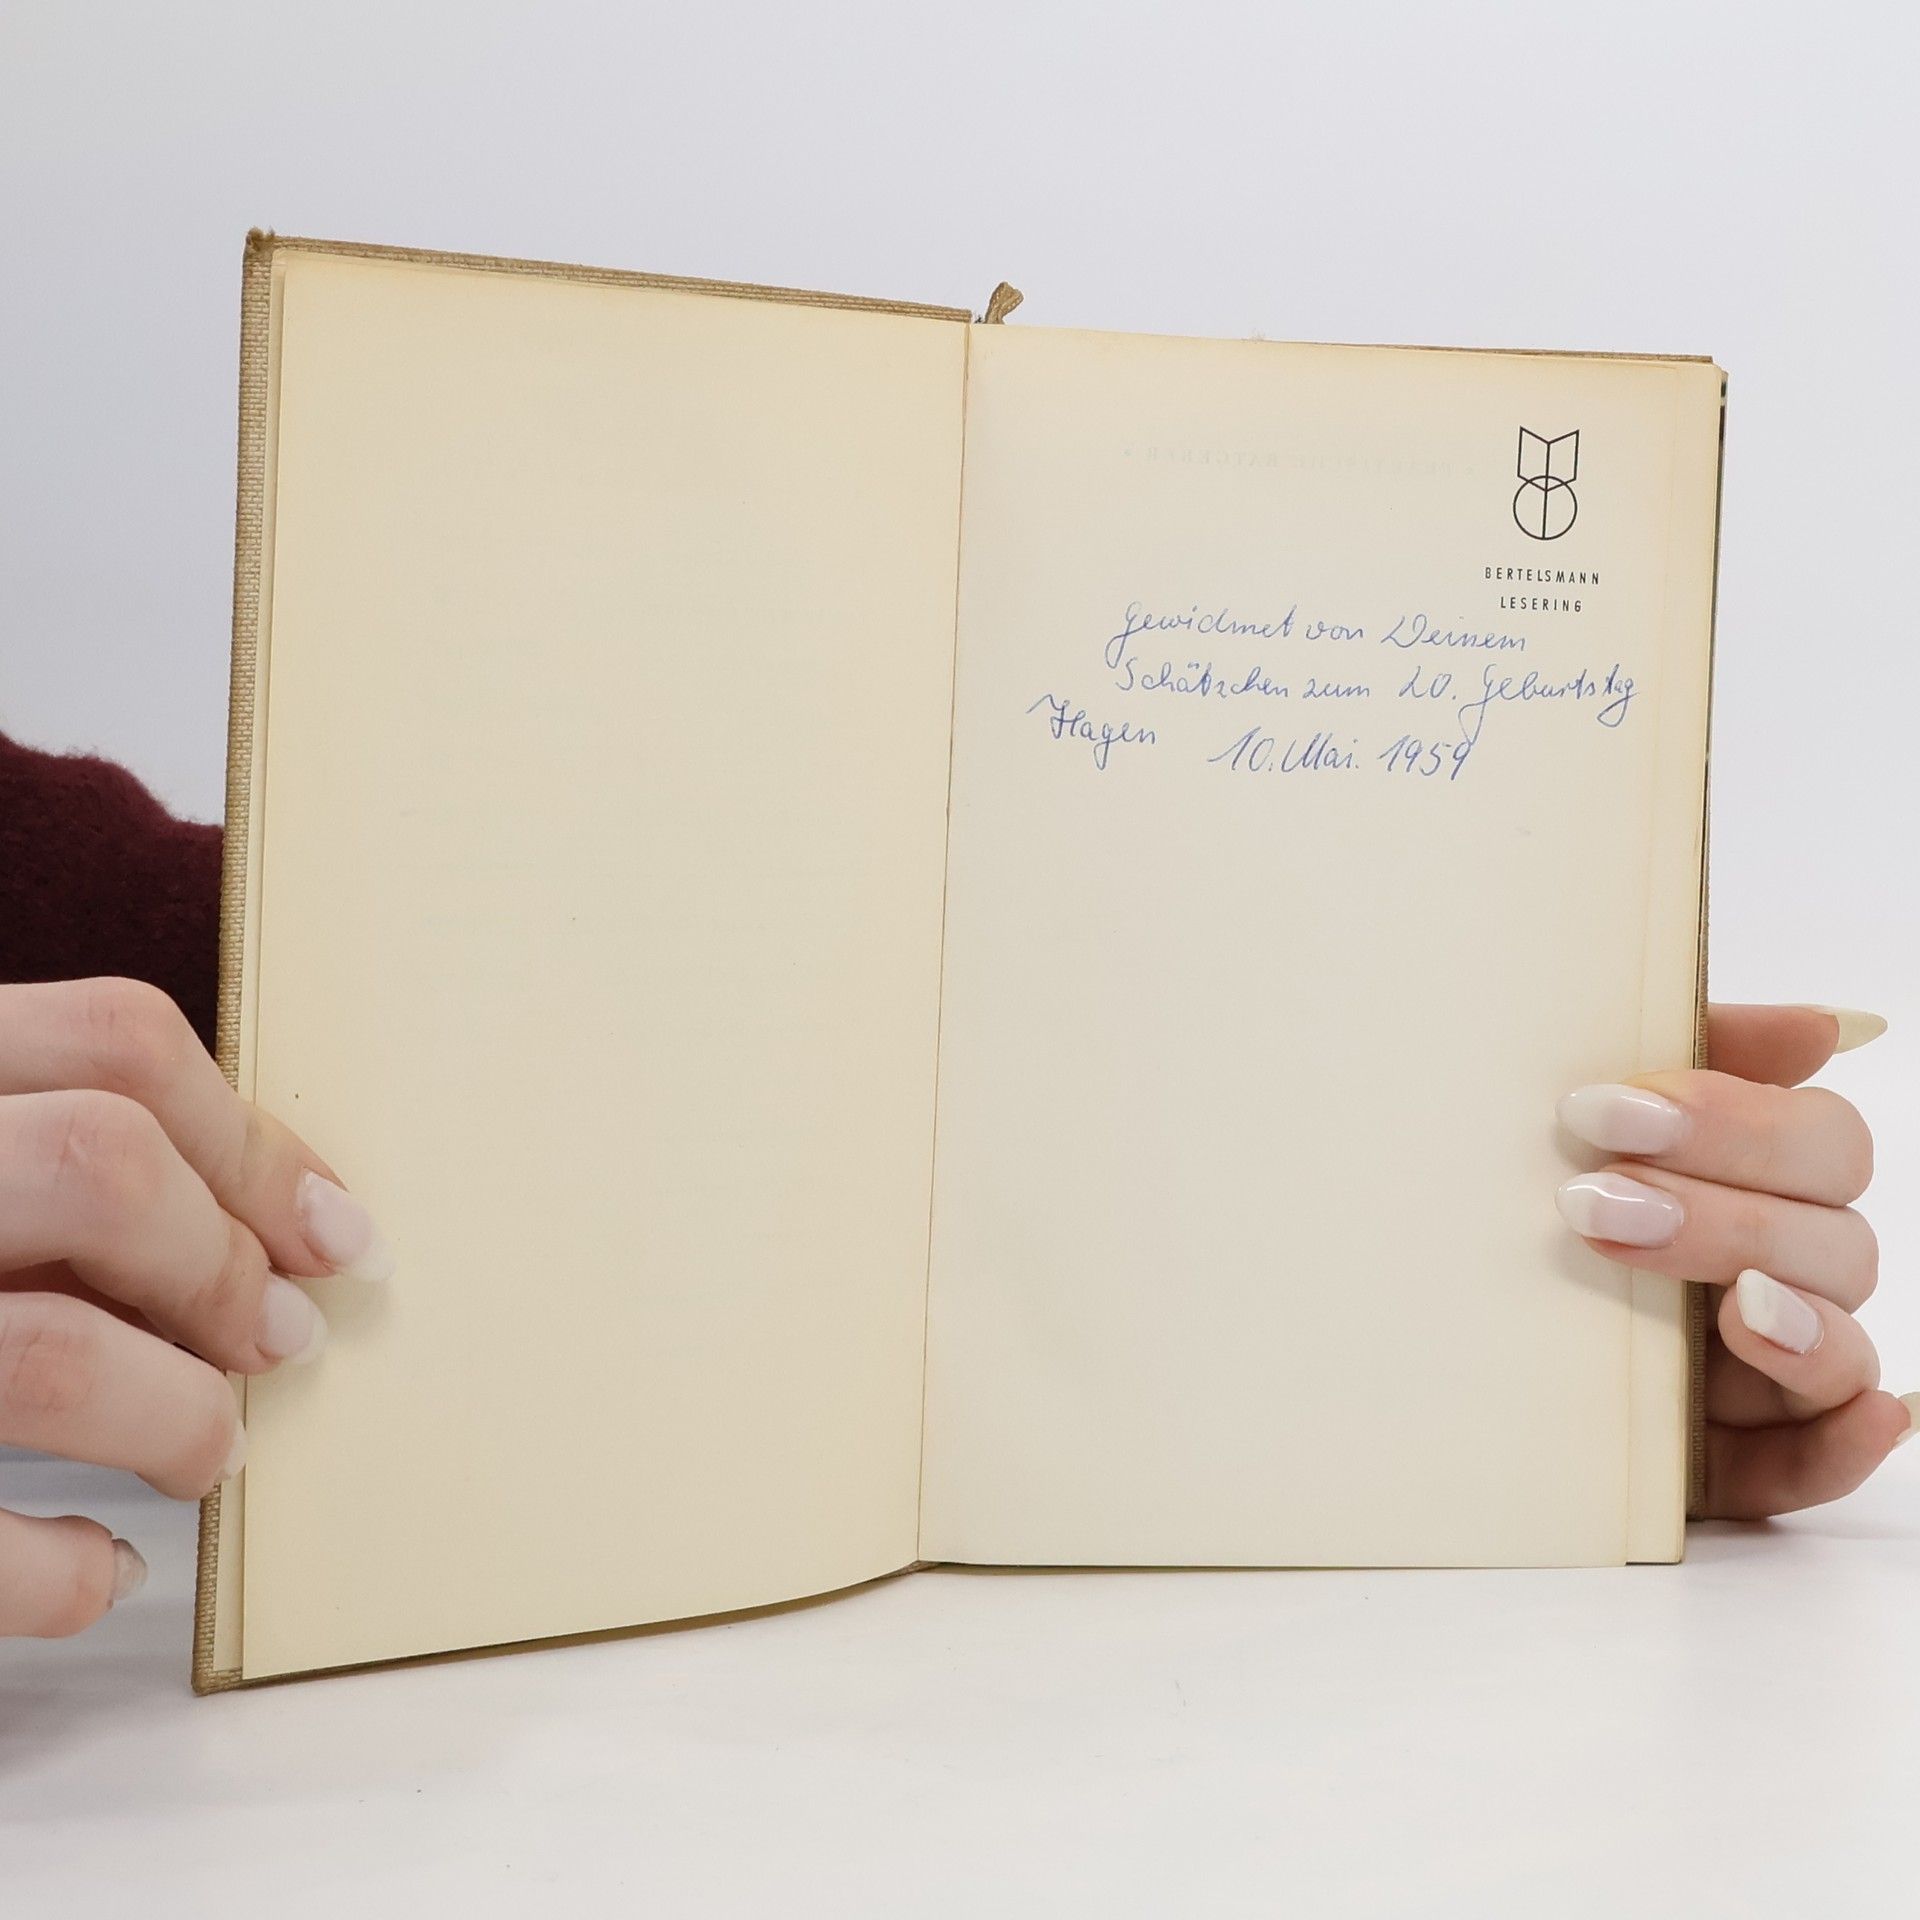 BERTELSMANN
LESERING
Gewidmet von Deinem
Schätzchen zum 20. Geburtstag
Hagen 10. Mai. 1959